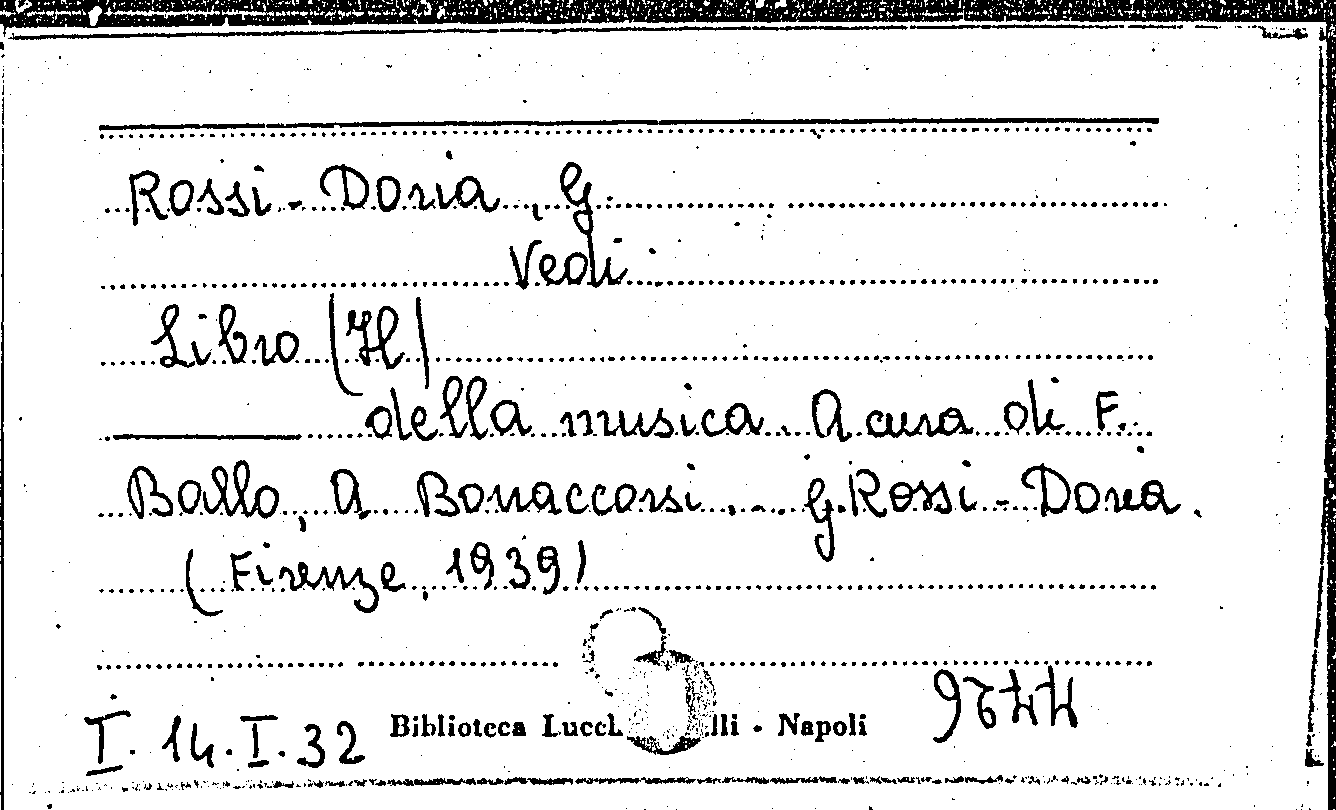 Rossi-Doria, G.
Vedi
Libro (Il)
della musica. A cura di F.
Ballo, A Bonaccorsi... G. Rossi-Doria.
(Firenze, 1939)
I. 14. I. 32 Biblioteca Lucch lli - Napoli